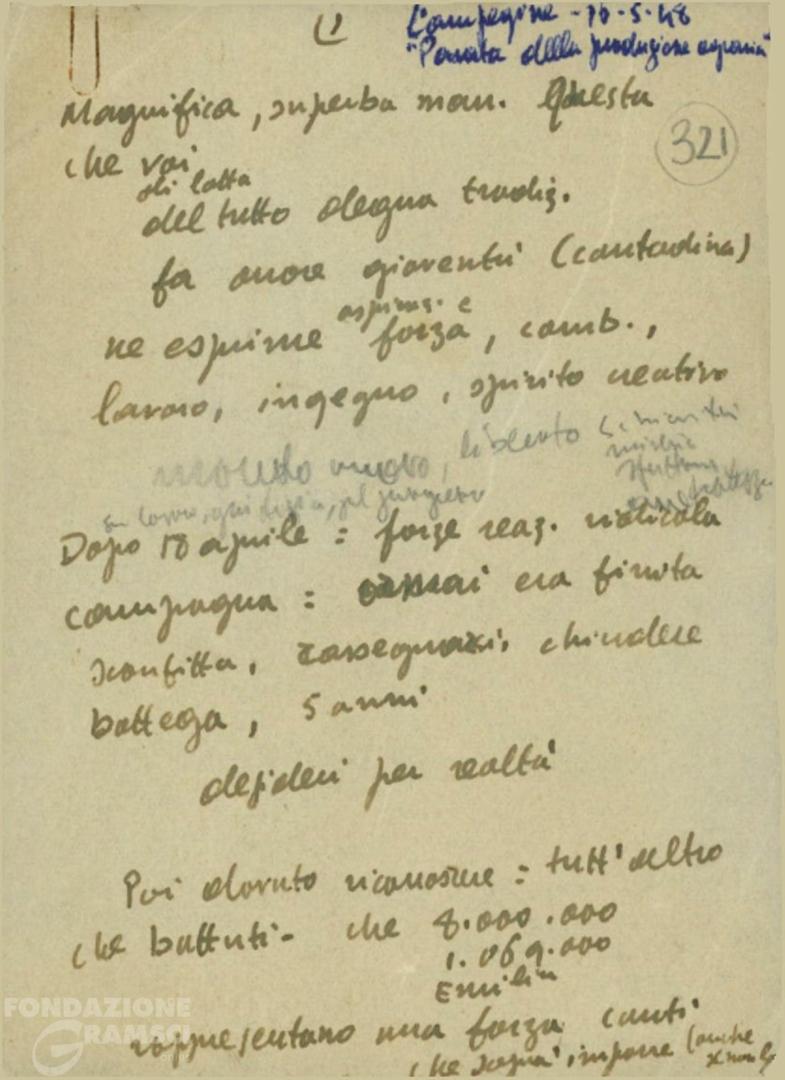 1)
Campegine - 16-5-48
"Parata della produzione agraria"
321
Magnifica, superba man. Questa
che voi
di lotta
del tutto degna tradiz.
fa onore gioventù (contadina)
aspiraz. e
ne esprime forza, comb.,
lavoro, ingegno, spirito creativo
mondo nuovo, liberato
miseria
Dopo 18 aprile = forze reaz. ridicola
campagna = ormai era finita
sconfitta, rassegnarsi, chiudere
bottega, 5 anni
desideri per realtà
Poi dovuto riconoscere = tutt'altro
che battuti - che 8.000.000
1.069.000
Emilia
rappresentano una forza
che saprà imporre (anche
FONDAZIONE
GRAMSCI